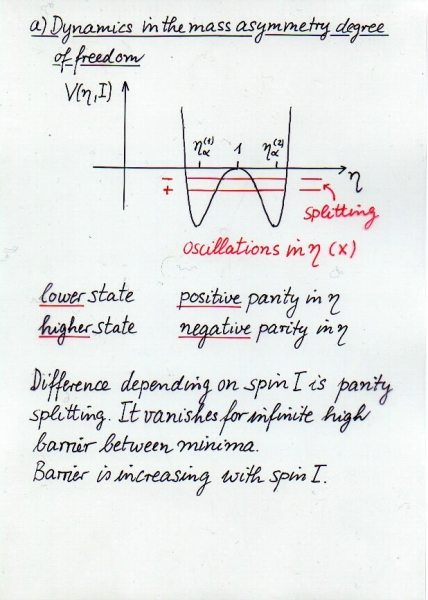 a) Dynamics in the mass asymmetry degree
of freedom
V(η,I)
η_α^(1) 1 η_α^(2)
− η
+
splitting
oscillations in η (x)
lower state positive parity in η
higher state negative parity in η
Difference depending on spin I is parity
splitting. It vanishes for infinite high
barrier between minima.
Barrier is increasing with spin I.